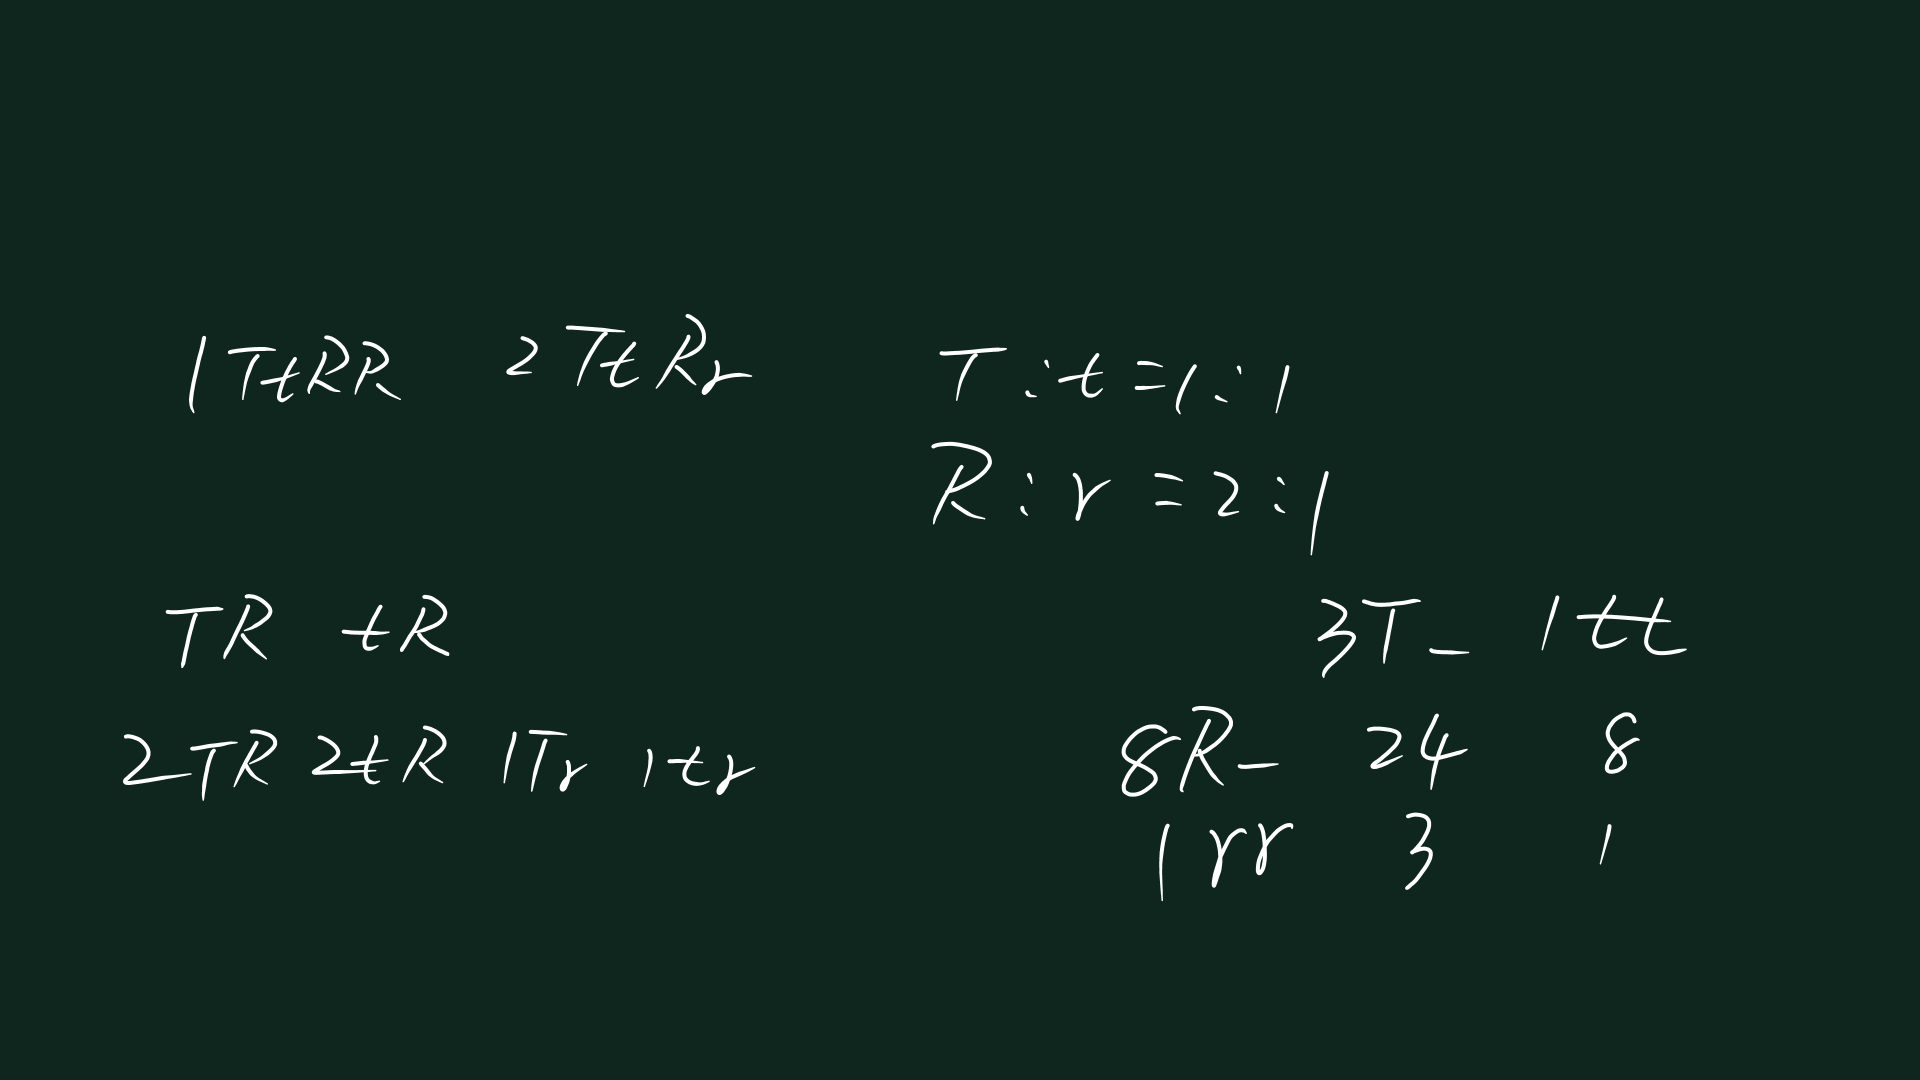 1TtRR 2TtRr
T:t=1:1
R:r=2:1
TR tR
2TR 2tR 1Tr 1tr
3T_ 1tt
8R_ 24 8
1rr 3 1